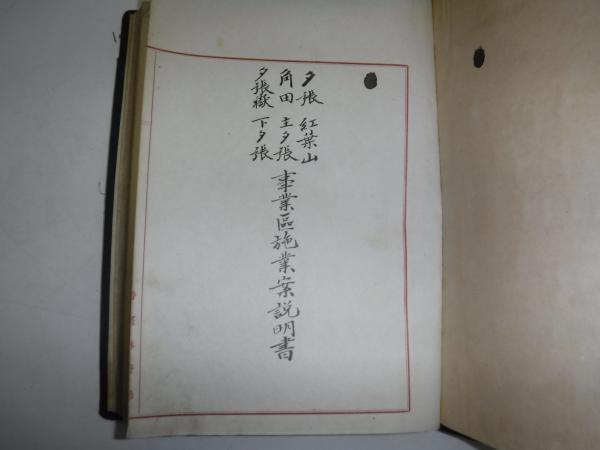 夕張 紅葉山
角田 主夕張
夕張嶽 下夕張
事業區施業案説明書